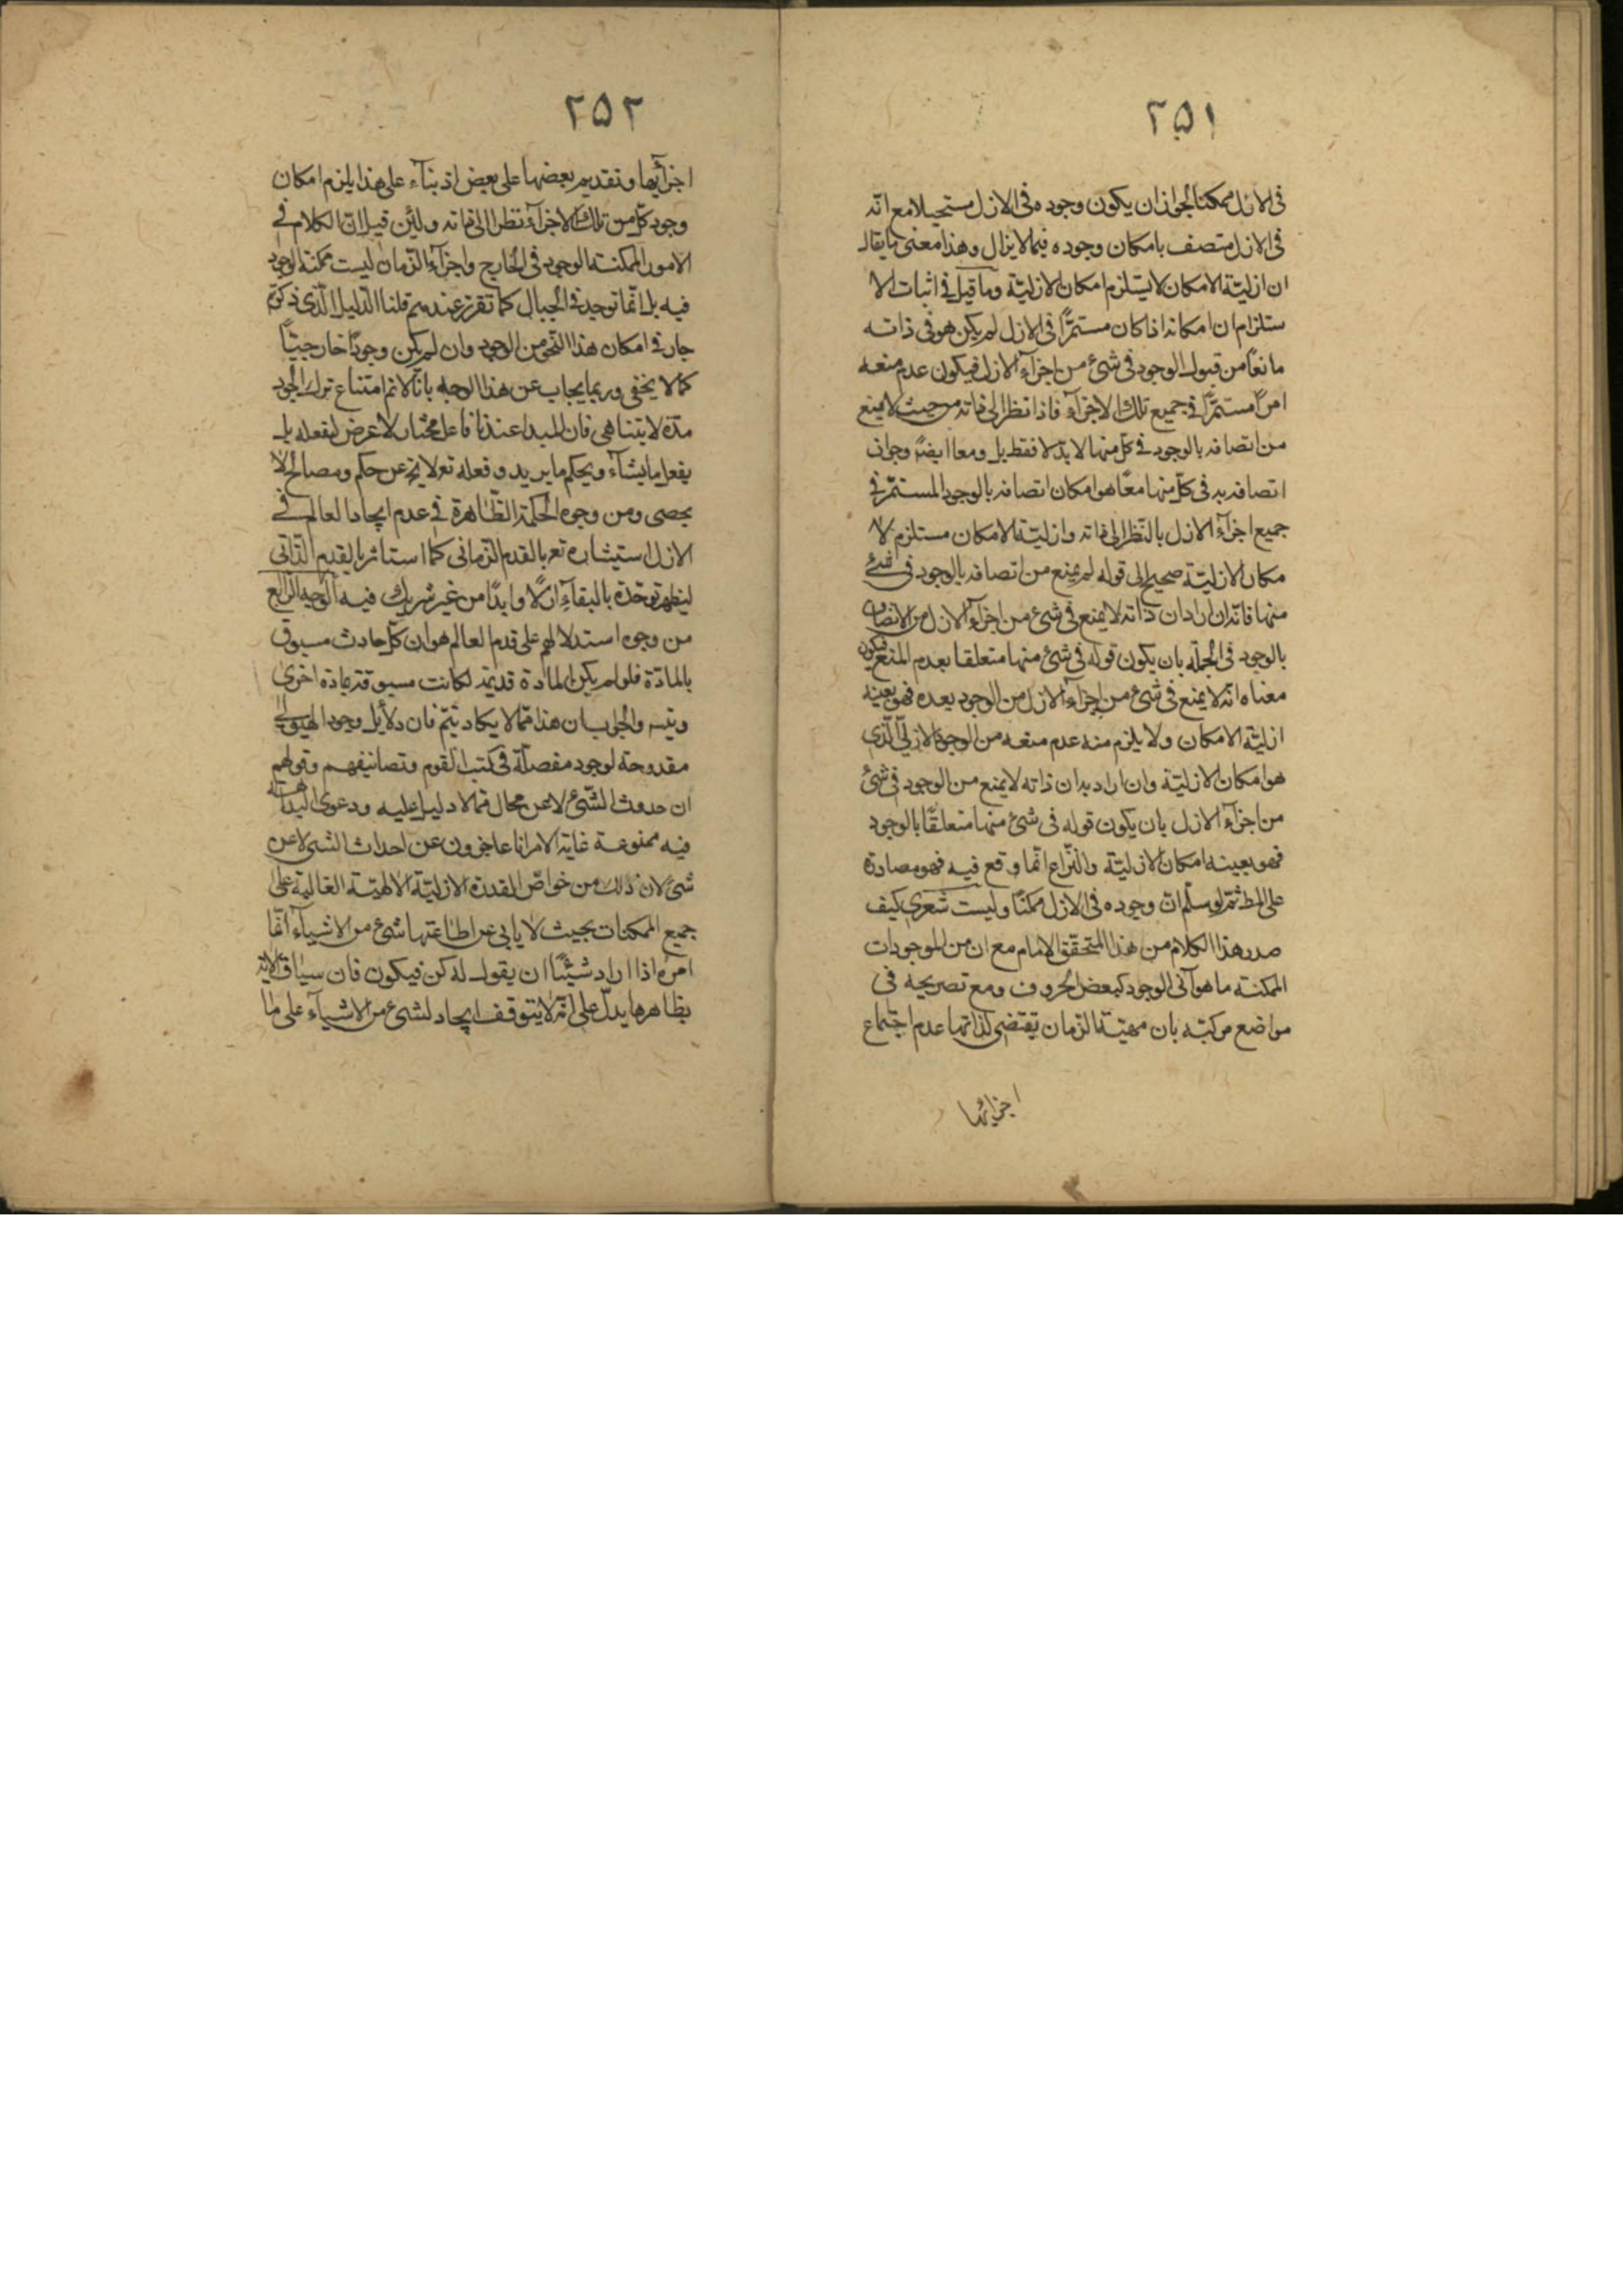 ٢٥١
فى الازل ممكنا لجواز ان يكون وجوده فى الازل مستحيلا مع انّه
فى الازل متصف بامكان وجوده فيما لا يزال وهذا معنى ما يقال
ان ازليّة الامكان لا يستلزم امكان الازليّة وما قيل فى اثبات الا
ستلزام ان امكانه اذا كان مستمرًّا فى الازل لم يكن هو فى ذاته
مانعًا من قبول الوجود فى شئ من اجزآء الازل فيكون عدم منعه
امرًا مستمرًّا فى جميع تلك الاجزآء فاذا نظر الى ذاته من حيث لا يمنع
من اتصافه بالوجود فى كلّ منها لا بدلا فقط بل ومعا ايضًا وجواز
اتصافه به فى كلّ منها معًا هو امكان اتصافه بالوجود المستمرّ فى
جميع اجزآء الازل بالنّظر الى ذاته وازليّة الامكان مستلزم لا
مكان الازليّة صحيح الى قوله لم يمنع من اتصافه بالوجود فى شئ
منها فانّه ان اراد ان ذاته لا يمنع فى شئ من اجزآء الازل من الاتصاف
بالوجود فى الجملة بان يكون قوله فى شئ منها متعلقا بعدم المنع فيكون
معناه انّه لا يمنع فى شئ من اجزآء الازل من الوجود بعده فهو بعينه
ازليّة الامكان ولا يلزم منه عدم منعه من الوجود الازلىّ الّذى
هو امكان الازليّة وان اراد به ان ذاته لا يمنع من الوجود فى شئ
من اجزآء الازل بان يكون قوله فى شئ منها متعلّقًا بالوجود
فهو بعينه امكان الازليّة والنّزاع انّما وقع فيه فهو مصادرة
على المط ثمّ لو سلّم انّ وجوده فى الازل ممكنًا وليست شعرى كيف
صدر هذا الكلام من هذا المتحقّق الامام مع ان من الموجودات
الممكنة ما هو آنى الوجود كبعض الحروف ومع تصريحه فى
مواضع من كتبه بان مهيّة الزمان يقتضى لذاتها عدم اجتماع
اجزائها
٢٥٢
اجزآئها وتقديم بعضها على بعض اذ بنآء على هذا يلزم امكان
وجود كلّ من تلك الاجزآء نظرا الى ذاته ولئن قيل انّ الكلام فى
الامور الممكنة الوجود فى الخارج واجزآء الزمان ليست ممكنة الوجود
فيه بل انّما توجد فى الخيال كما تقرّر عندهم قلنا الدّليل الّذى ذكرتم
جار فى امكان هذا النّحو من الوجود وان لم يكن وجودًا خارجيًّا
كما لا يخفى وربما يجاب عن هذا الوجه بانّا لا نم امتناع ترك الجود
مدّة لا يتناهى فان المبدا عندنا فاعل مختار لا غرض لفعله بل
يفعل ما يشآء ويحكم ما يريد وفعله تع لا يخ عن حكم ومصالح لا
يحصى ومن وجوه الحكمة الظّاهرة فى عدم ايجاد العالم فى
الازل استيثاره تع بالقدم الزمانى كما استاثر بالقدم الذّاتى
ليظهر توحّده بالبقآء ازلًا وابدًا من غير شريك فيه الوجه الرّابع
من وجوه استدلالهم على قدم العالم هو ان كلّ حادث مسبوق
بالمادّة فلو لم يكن المادة قديمة لكانت مسبوقة بمادة اخرى
ويتسه والجواب ان هذا ممّا لا يكاد يتمّ فان دلآيل وجود الهيولى
مقدوحة لوجود مفصلّة فى كتب القوم وتصانيفهم وقولهم
ان حدوث الشّئ لا عن محال ممّا لا دليل عليه ودعوى البداهة
فيه ممنوعة غاية الامر انا عاجزون عن احداث الشئ لا عن
شئ لان ذلك من خواصّ القدرة الازليّة الالهيّة الغالبة على
جميع الممكنات بحيث لا يابى عن اطاعتها شئ من الاشيآء انّما
امره اذا اراد شيئًا ان يقول له كن فيكون فان سياق الاية
بظاهرها يدلّ على انّه لا يتوقف ايجاد لشئ من الاشيآء على ما